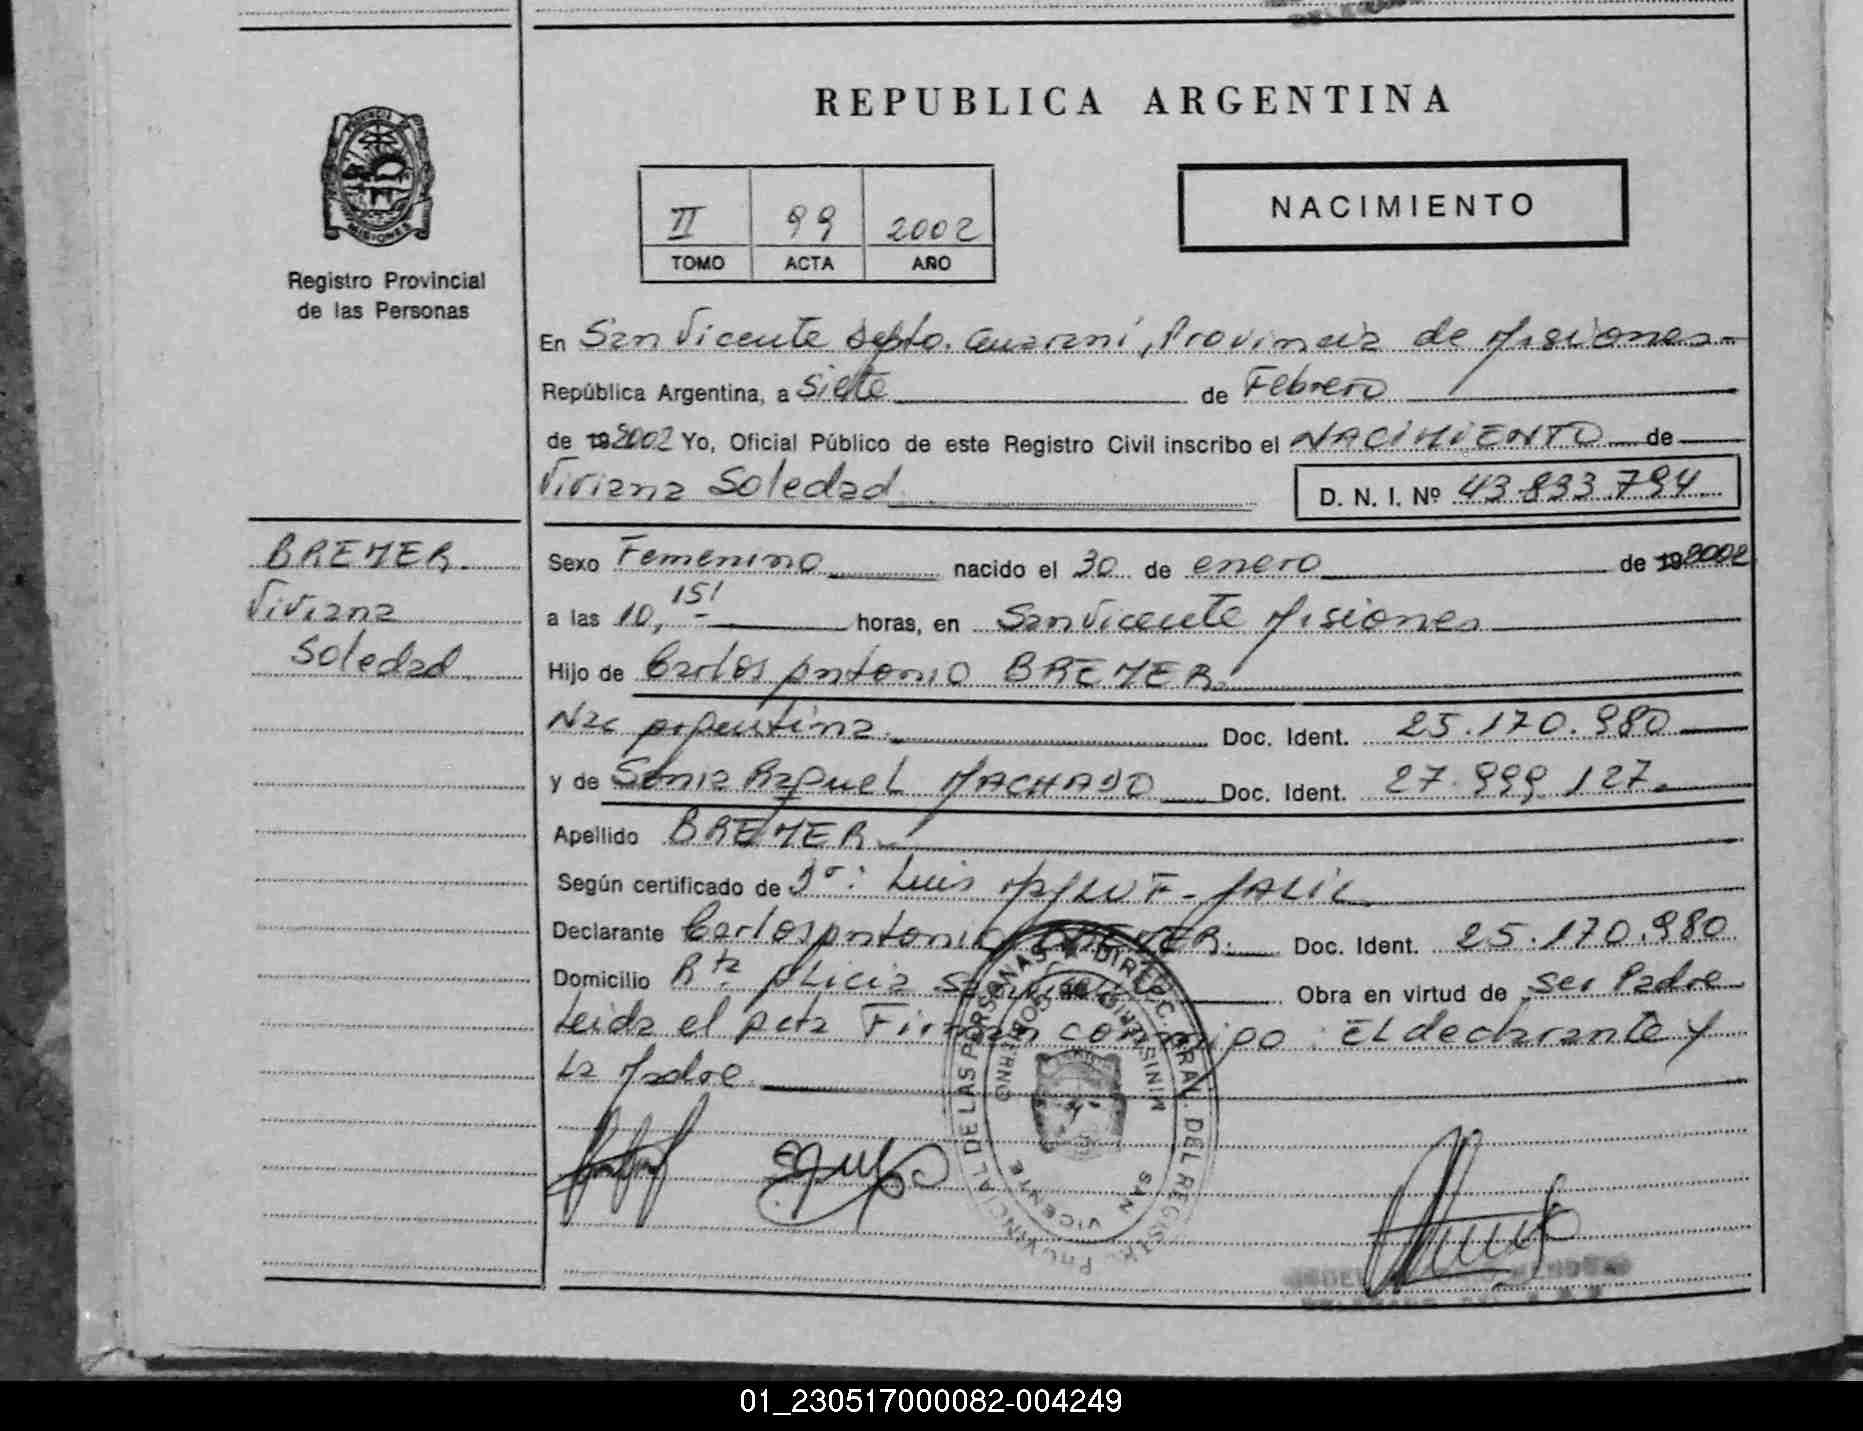 REPUBLICA ARGENTINA
PROVINCIA DE MISIONES
Registro Provincial
de las Personas
II 99 2002
TOMO ACTA AÑO
NACIMIENTO
En San Vicente Depto. Guaraní, Provincia de Misiones.-
República Argentina, a Siete de Febrero
de 19 2002 Yo, Oficial Público de este Registro Civil inscribo el NACIMIENTO de
Viviana Soledad
D. N. I. Nº 43.833.794
BREMER.
Viviana
Soledad
Sexo Femenino nacido el 30 de enero de 19 2002
a las 10, 15' horas, en San Vicente Misiones
Hijo de Carlos Antonio BREMER.
Nac Argentina. Doc. Ident. 25.170.980
y de Sonia Raquel MACHADO Doc. Ident. 27.999.127.
Apellido BREMER.
Según certificado de Dr: Luis
Declarante Carlos Antonio BREMER. Doc. Ident. 25.170.980
Domicilio Rta. Alicia San Vicente Obra en virtud de ser Padre
Leida el Acta Firman conmigo: El declarante y
La Madre.
DIREC. GRAL. DEL REGISTRO PROVINCIAL DE LAS PERSONAS
MINISTERIO DE GOBIERNO
SAN VICENTE
01_230517000082-004249